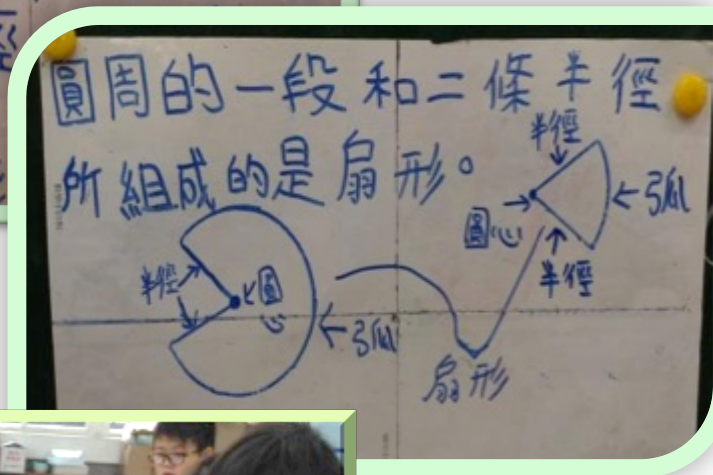 圓周的一段和二條半徑
所組成的是扇形。
半徑
圓心
弧
半徑
半徑
圓心
弧
扇形